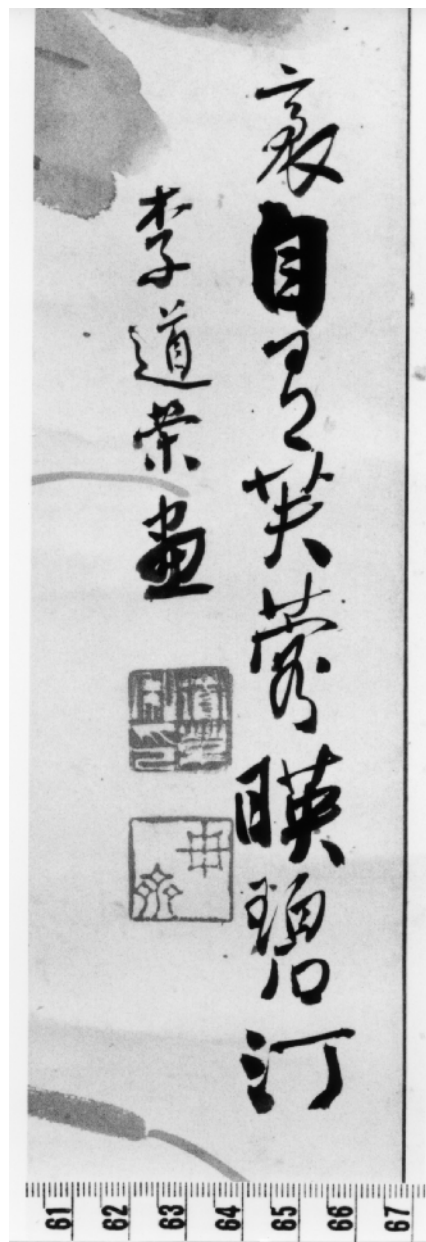 裏自有芙蓉暎碧汀
李道榮畫
61 62 63 64 65 66 67